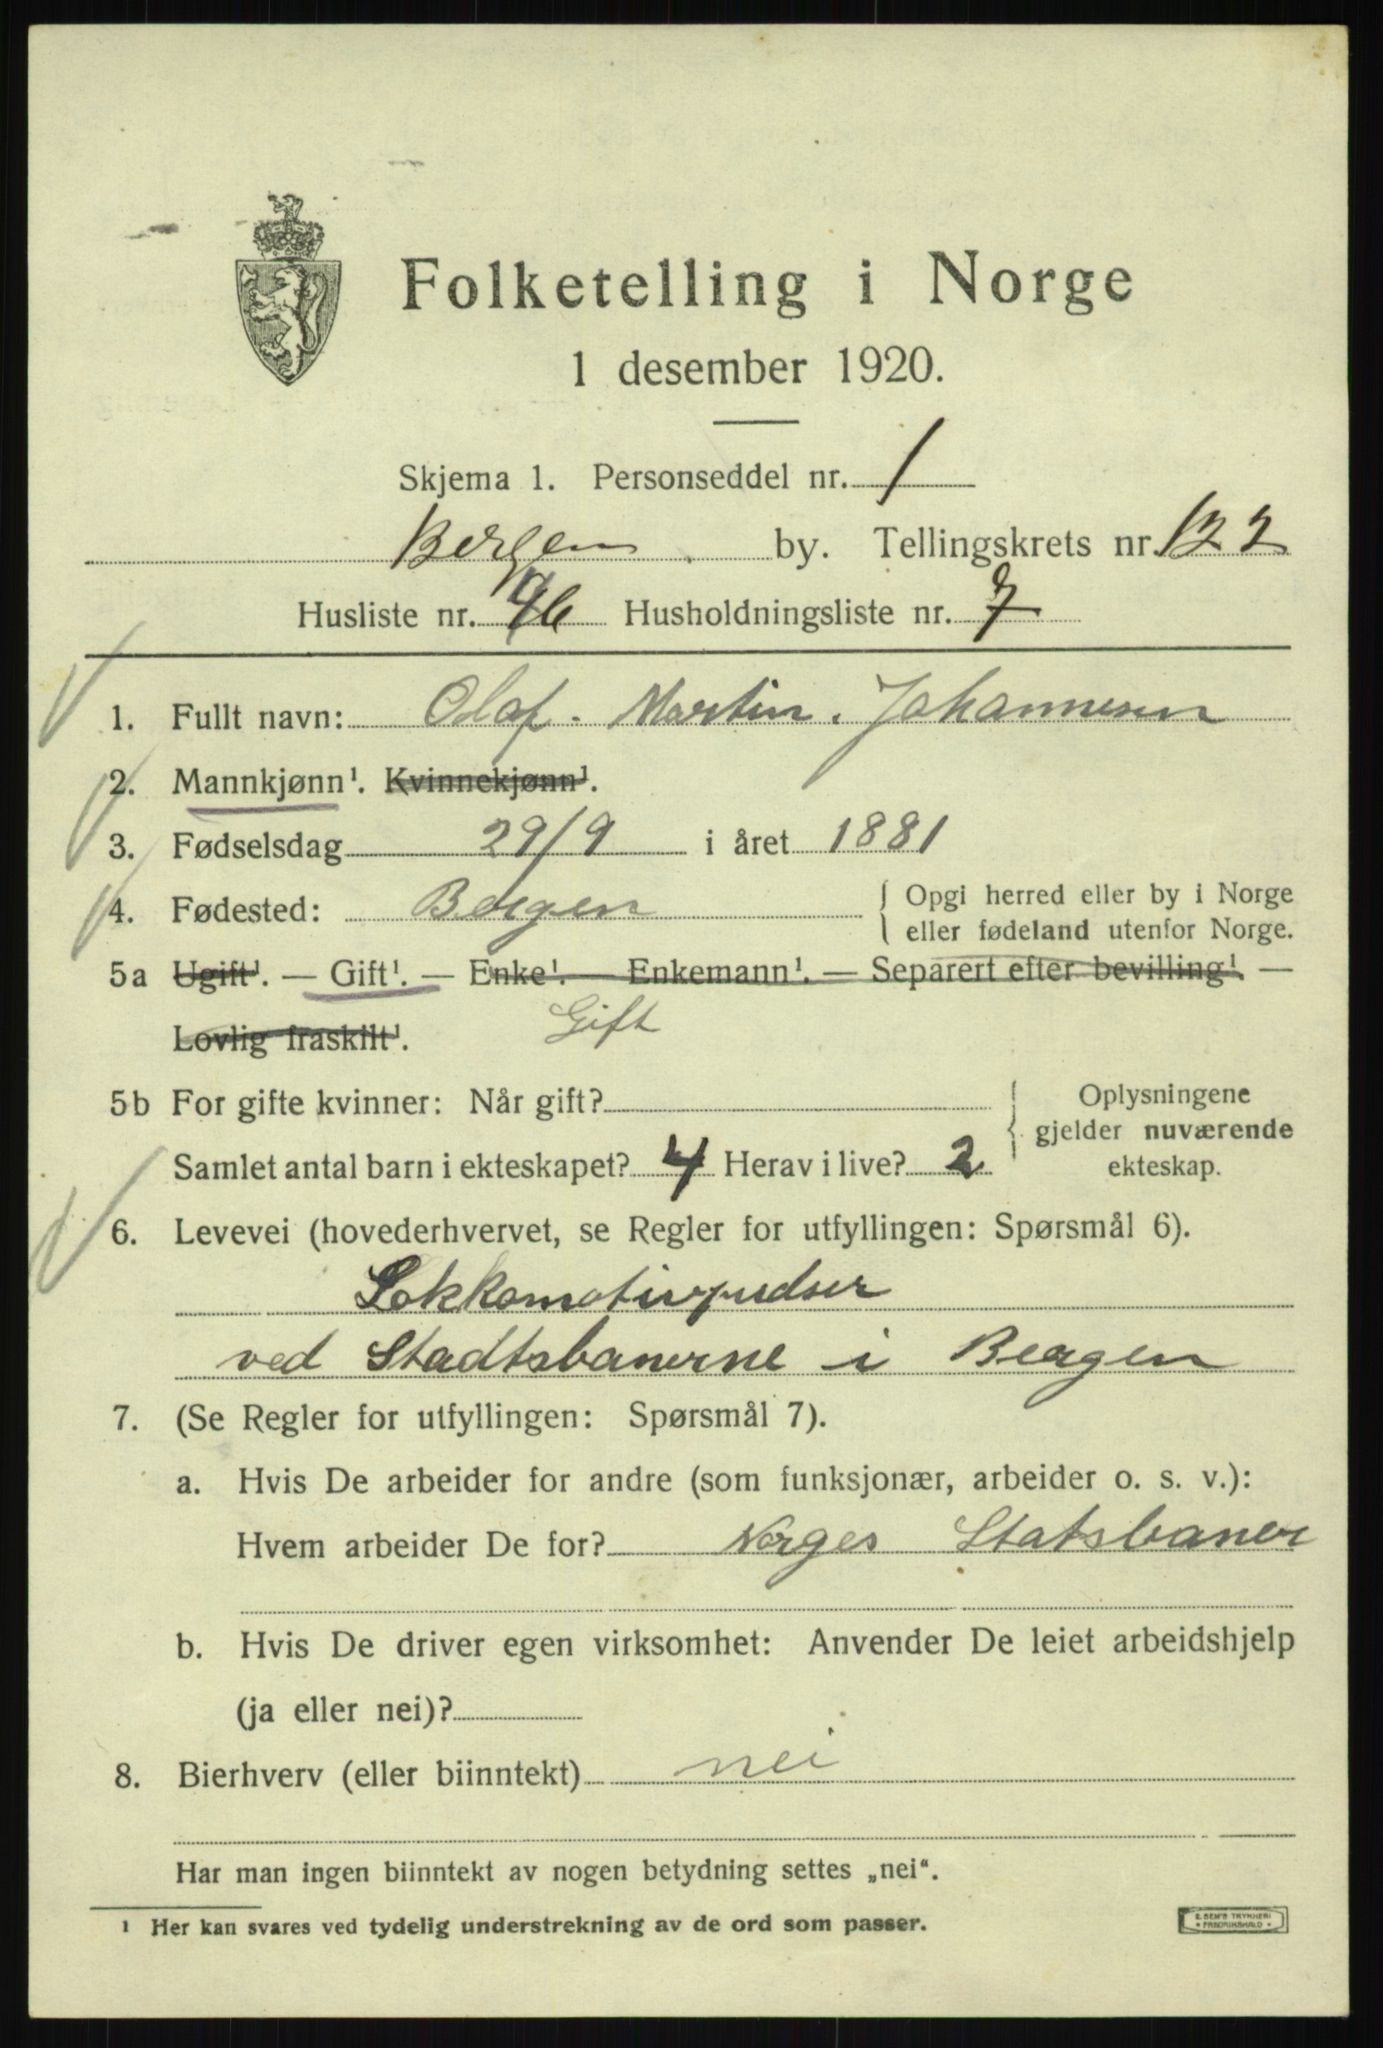 Folketelling i Norge
1 desember 1920.
Skjema 1. Personseddel nr. 1
Bergen by. Tellingskrets nr. 122
Husliste nr. 46 Husholdningsliste nr. 7
1. Fullt navn: Olaf. Martin. Johannesen
2. Mannkjønn¹. Kvinnekjønn¹.
3. Fødselsdag 29/9 i året 1881
4. Fødested: Bergen { Opgi herred eller by i Norge
eller fødeland utenfor Norge.
5a Ugift¹. — Gift¹. — Enke¹. — Enkemann¹. — Separert efter bevilling¹ —
Lovlig fraskilt¹. Gift
5b For gifte kvinner: Når gift? Oplysningene
gjelder nuværende
Samlet antal barn i ekteskapet? 4 Herav i live? 2 ekteskap.
6. Levevei (hovederhvervet, se Regler for utfyllingen: Spørsmål 6).
Lokkomotivpudser
ved Stadtsbanerne i Bergen
7. (Se Regler for utfyllingen: Spørsmål 7).
a. Hvis De arbeider for andre (som funksjonær, arbeider o. s. v.):
Hvem arbeider De for? Norges Statsbaner
b. Hvis De driver egen virksomhet: Anvender De leiet arbeidshjelp
(ja eller nei)?
8. Bierhverv (eller biinntekt) nei
Har man ingen biinntekt av nogen betydning settes „nei“.
¹ Her kan svares ved tydelig understrekning av de ord som passer.
E. SEM'S TRYKKERI
FREDRIKSHALD